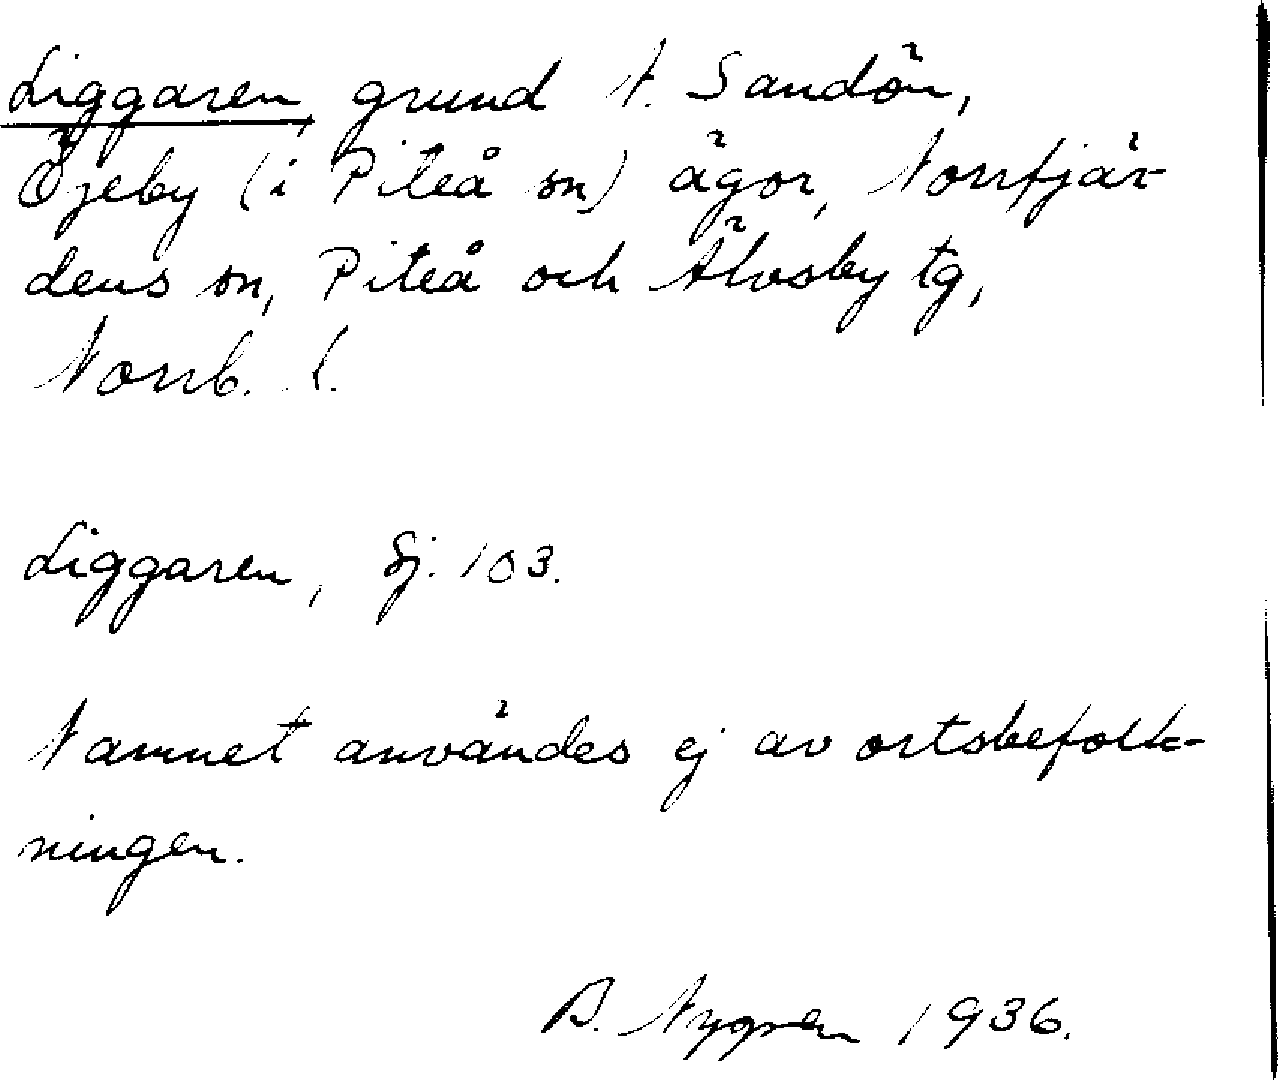 Liggaren, grund N. Sandön,
Öjeby (i Piteå sn) ägor, Norrfjär-
dens sn, Piteå och Älvsby tg,
Norrb. l.
Liggaren, Sj. 103.
Namnet användes ej av ortsbefolk-
ningen.
B. Nygren 1936.